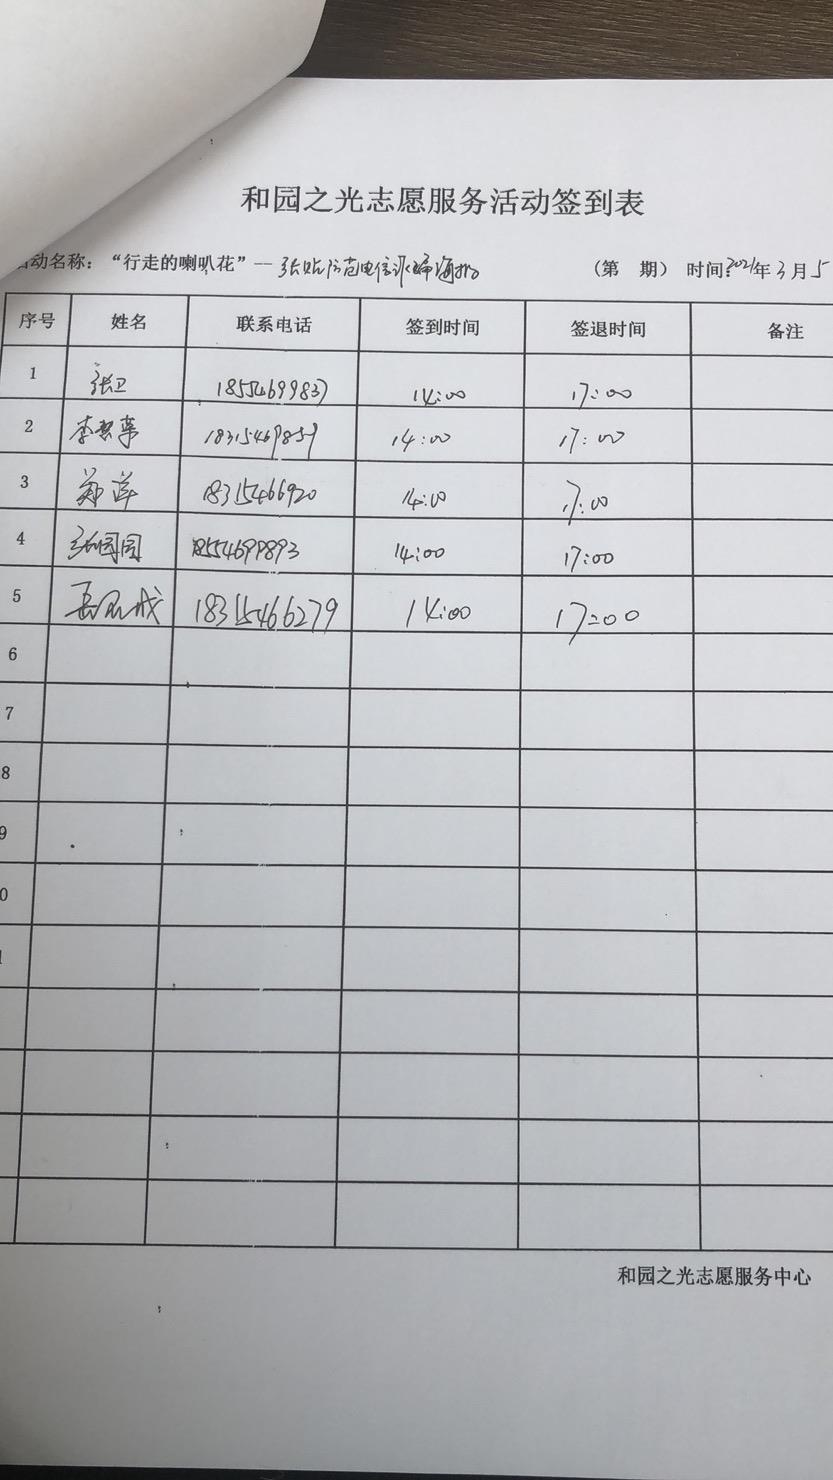 和园之光志愿服务活动签到表
活动名称：“行走的喇叭花”-- 张贴防范电信诈骗海报 （第 期） 时间：2021年3月5
序号 姓名 联系电话 签到时间 签退时间 备注
1 张卫 18554699837 14:00 17:00
2 李 18315469859 14:00 17:00
3 郑萍 18315466920 14:00 17:00
4 张园园 18554699893 14:00 17:00
5 18315466279 14:00 17:00
6
7
8
9
0
1
和园之光志愿服务中心